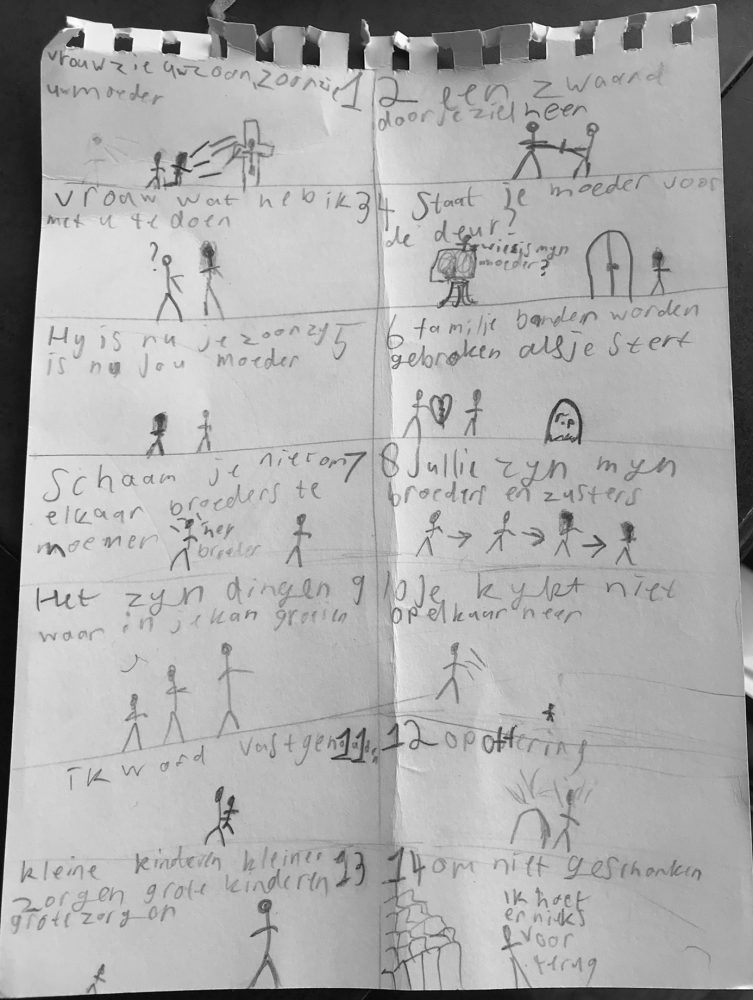 vrouw zie uw zoon, zoon zie 1
uw moeder
2 een zwaard
door je ziel heen
vrouw wat heb ik 3
met u te doen
4 Staat je moeder voor
de deur?
wie is myn
moeder?
?
Hy is nu je zoon zy 5
is nu jou moeder
6 familje banden worden
gebroken als je stert
r.i.p
Schaam je nier om 7
elkaar broeders te
noemen
hey
broeder
8 Jullie zyn myn
broeders en zusters
Het zyn dingen 9
waar in je kan groeien
10 Je kykt niet
op elkaar neer
11
ik word
12 opoffering
kleine kinderen kleiner 13
zorgen grote kinderen
grote zorgen
14 om niet geschonken
ik hoef
er nieks
voor
terug